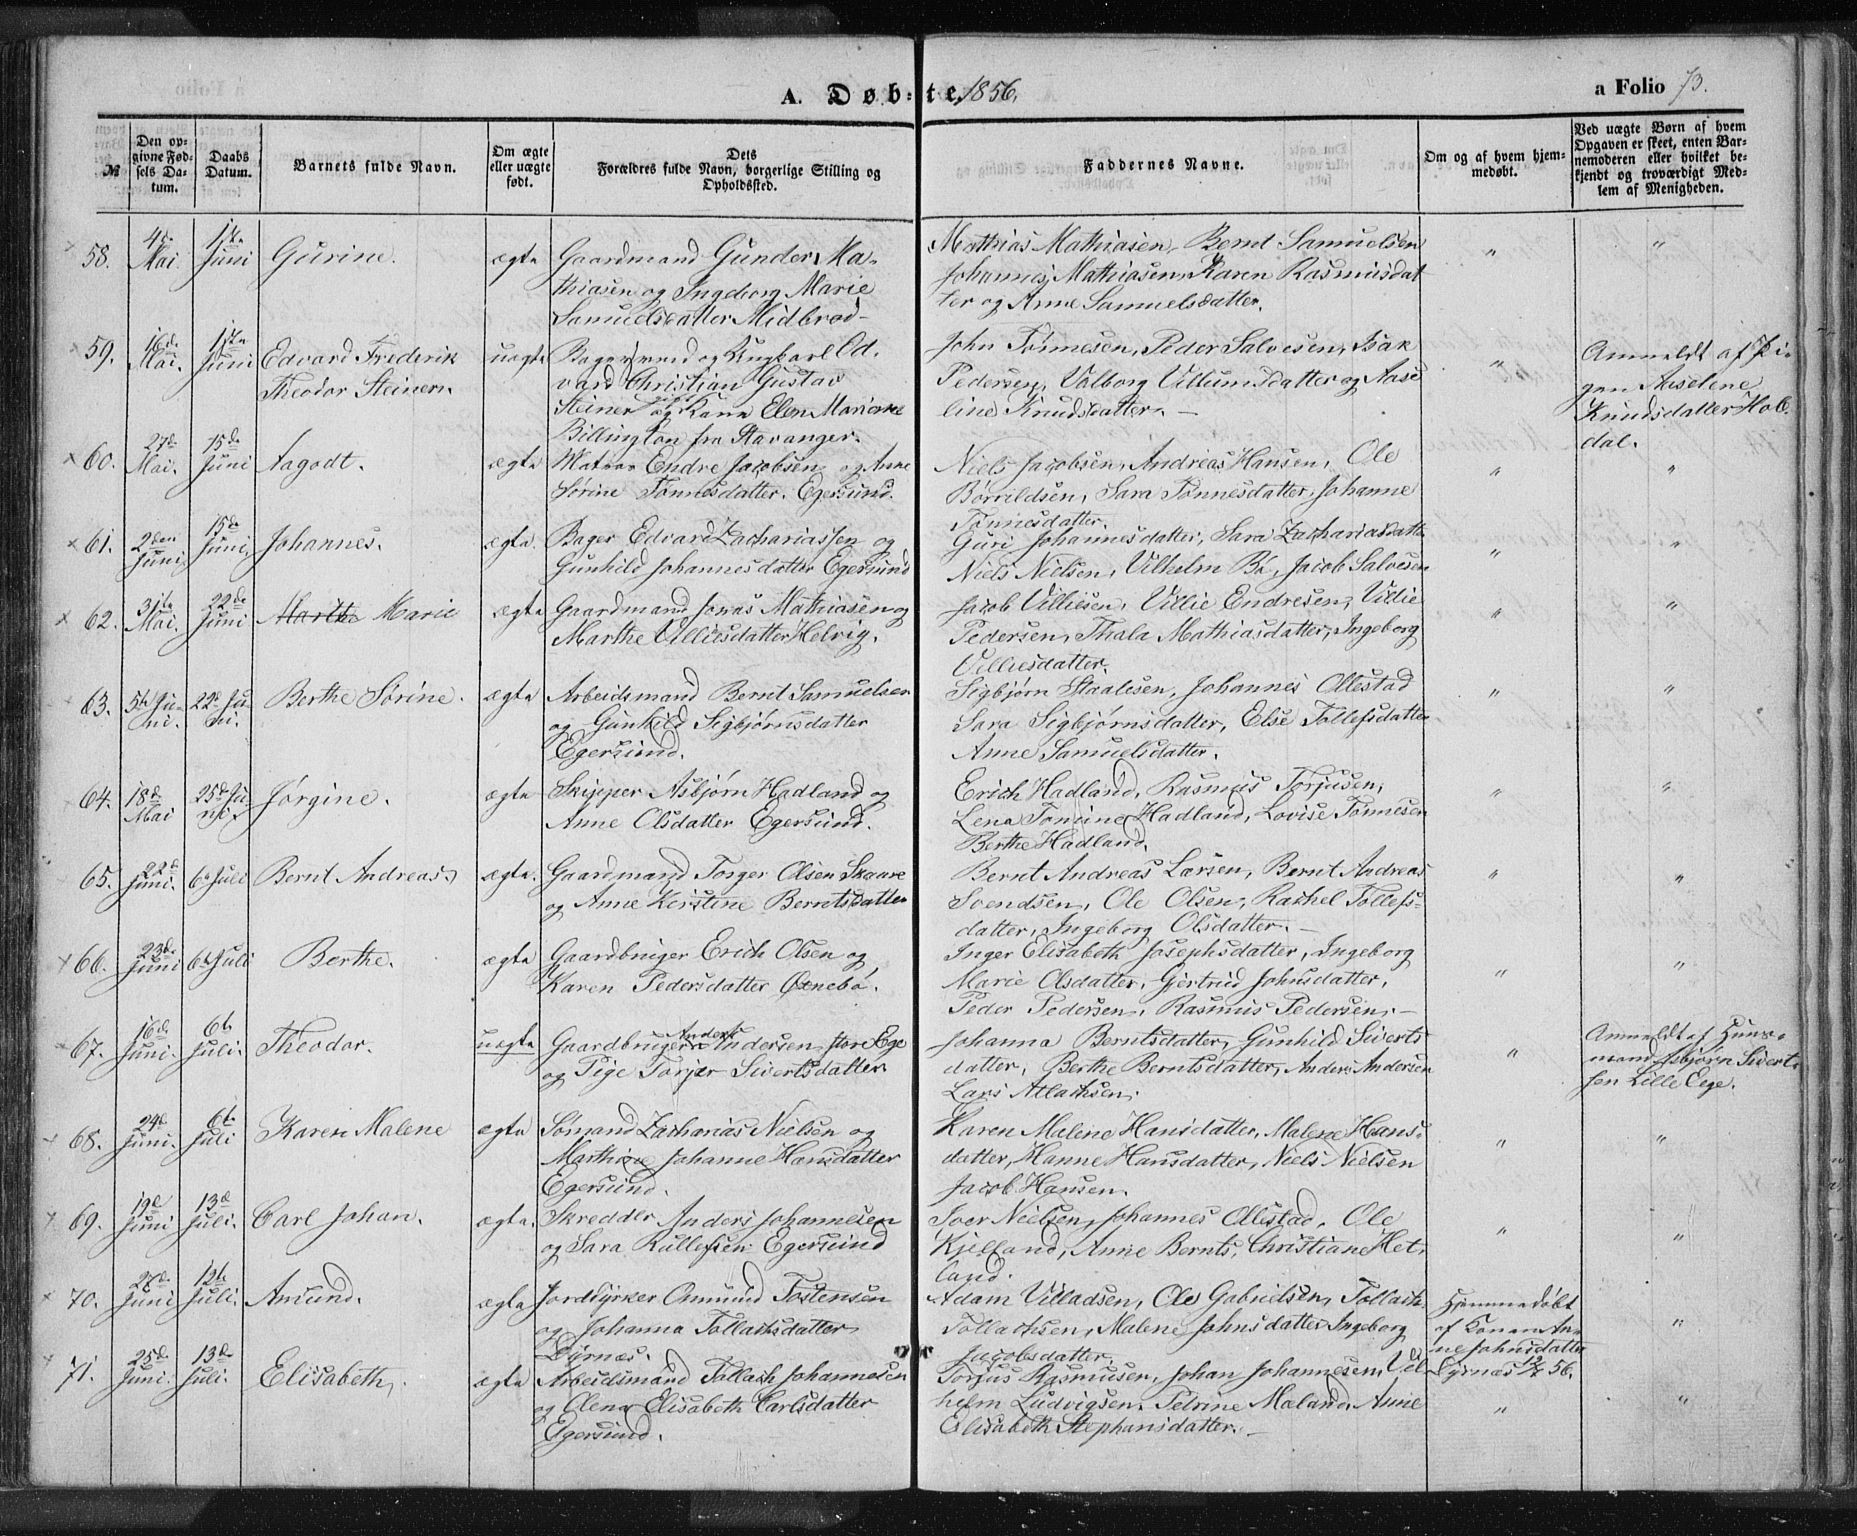 A. Døb-te 1856.
a Folio 73.
№
Den op-
givne Fød-
sels Da-
tum.
Daabs
Datum.
Barnets fulde Navn.
Om ægte
eller uægte
født.
Dets
Forældres fulde Navn, borgerlige Stilling og
Opholdssted.
Faddernes Navne.
Om og af hvem hjem-
medøbt.
Ved uægte Børn af hvem
Opgaven er skeet, enten Bar-
nemoderen eller hvilket be-
kjendt og troværdigt Med-
lem af Menigheden.
58. 4de Mai 1ste Juni Gurine. ægte Gaardmand Gunder Ma-
thiasen og Ingeborg Marie
Samuelsdatter Midbrød-
Mathias Mathiasen, Bernt Samuelsen
Johannes Mathiasen, Karen Rasmusdat
ter og Anne Samuelsdatter.
" "
59. 16de Mai. 1ste Juni Edvard Frederik
Theodor Steinern.
uægte Bager og Ungkarl Ed-
vard Christian Gustav
Steiner og Kone Elen Mariane
Billington fra Stavanger.
John Tønnesen, Peder Salvesen, Isak
Pedersen, Valborg Villumsdatter og Aase
line Knudsdatter. -
"
Anmeldt af Pi-
gen Aaselene
Knudsdatter Hol-
dal.
60. 27de Mai. 15de Juni Aagodt. ægte Matros Endre Jacobsen og Anne
Sørine Tønnesdatter. Egersund.
Niels Jacobsen, Andreas Hansen, Ole
Børrildsen, Sara Tønnesdatter, Johanne
Tønnesdatter.
" "
61. 2den Juni 15de Juni Johannes. ægte. Bager Edvard Zachariassen og
Gunhild Johannesdatter Egersund
Guri Johannesdatter, Sara Zachariasdatte
Niels Nielsen, Vilhelm Bø, Jacob Salvesen
" "
62. 31te Mai. 22de Juni Marthe Marie ægte Gaardmand Jonas Mathiasen og
Marthe Villiesdatter Helvig.
Jacob Villiesen, Villie Endresen, Villie
Pedersen, Thala Mathiasdatter, Ingeborg
Villiesdatter.
" "
63. 5te Ju-
ni. 22de Ju-
ni. Berthe Sørine. ægte Arbeidsmand Bernt Samuelsen
og Gunhild Sigbjørnsdatter
Egersund.
Sigbjørn Staalesen, Johannes Ollestad
Sara Sigbjørnsdatter, Else Tollefsdatter
Anne Samuelsdatter.
" "
64. 18de
Mai 25de Ju-
ni. Jørgine. ægte Skipper Asbjørn Hadland og
Anne Olsdatter Egersund.
Erich Hadland, Rasmus Torjusen,
Lena Tomine Hadland, Lovise Tønnesen
Berthe Hadland.
" "
65. 22de Juni. 6te Juli Bernt Andreas. ægte. Gaardmand Torger Olsen Skaare
og Anne Kirstine Berntsdatter
Bernt Andreas Larsen, Bernt Andreas
Svendsen, Ole Olsen, Rachel Tollefs-
datter, Ingeborg Olsdatter. -
" "
66. 23de Juni 6te Juli Berthe. ægte Gaardbruger Erich Olsen og
Karen Pedersdatter Øxnebø.
Inger Elisabeth Josephsdatter, Ingeborg
Marie Olsdatter, Gjertrud Johnsdatter,
Peder Pedersen, Rasmus Pedersen. -
" "
67. 16de Juni. 6te Juli. Theodor. uægte Gaardbruger Anders Andersen store Ege
og Pige Torjer Sivertsdatter
Johanna Berntsdatter, Gunhild Siverts
datter, Berthe Berntsdatter, Anders Andersen
Lars Atlachsen.
"
Anmeldt af Huus-
mand Asbjørn Sivert-
sen Lille Eege.
68. 24de Juni. 6te Juli Karen Malene ægte Sømand Zacharias Nielsen og
Marthine Johanne Hansdatter
Egersund.
Karen Malene Hansdatter, Malene Hans-
datter, Hanne Hansdatter, Niels Nielsen
Jacob Hansen.
" "
69. 19de Juni 13de Juli. Carl Johan. ægte. Skredder Anders Johannesen
og Sara Rullefsen Egersund
Soer Nielsen, Johannes Ollestad, Ole
Kjelland, Anne Bernts, Christiane Het-
land.
" "
70. 27de Juni 12te Juli. Amund. ægte Jorddyrker Omund Tostensen
og Johanna Tollachsdatter
Dyrnæs.
Adam Villadsen, Ole Gabrielsen, Tollach
Tollachsen, Malene Johnsdatter Ingeborg
Jacobsdatter.
Hjemmedøbt
af Konen An-
ne Johnsdatter
Dyrnæs 56.
"
71. 25de Juni. 13de Juli. Elisabeth. ægte Arbeidsmand Tollach Johannesen
og Olena Elisabeth Carlsdatter
Egersund.
Torjus Rasmusen, Johan Johannesen, Vil-
helm Ludvigsen, Petrine Maland, Anne
Elisabeth Stephansdatter. -
" "